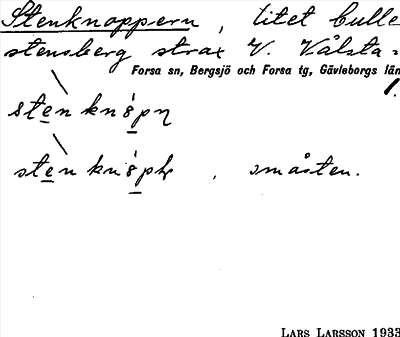 Stenknoppern, litet bulle
stensberg strax V. Vålsta=
Forsa sn, Bergsjö och Forsa tg, Gävleborgs län
1.
småsten.
LARS LARSSON 1933